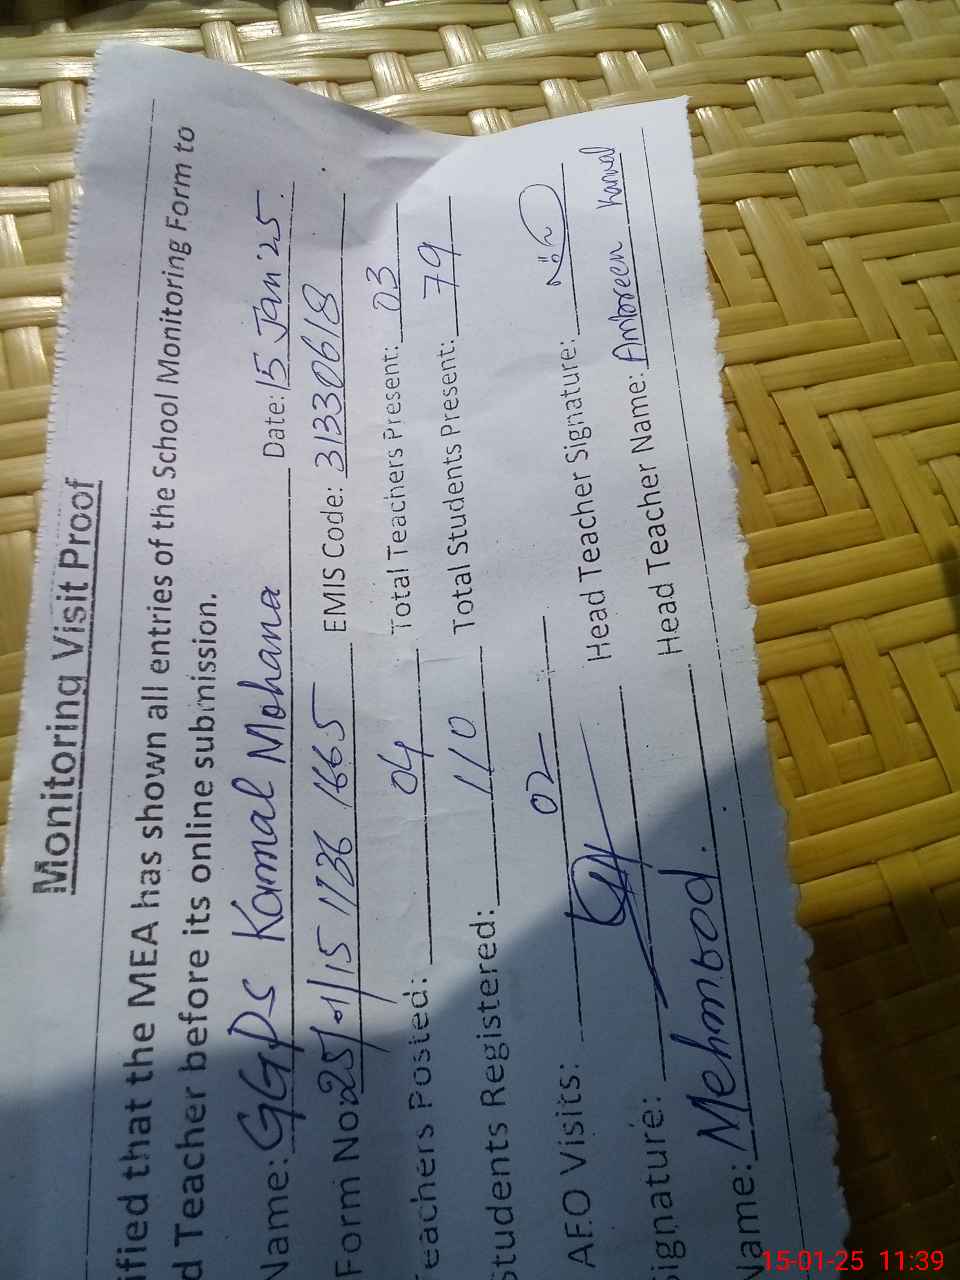 Monitoring Visit Proof
ified that the MEA has shown all entries of the School Monitoring Form to
d Teacher before its online submission.
Name: GGPS Kamal Mohana Date: 15 Jan'25.
Form No: 25/01/15 1136 1665 EMIS Code: 31330618
Teachers Posted: 04 Total Teachers Present: 03
Students Registered: 110 Total Students Present: 79
AEO Visits: 02
Signature: Head Teacher Signature:
Name: Mehmood. Head Teacher Name: Ambreen Kanwal
15-01-25 11:39